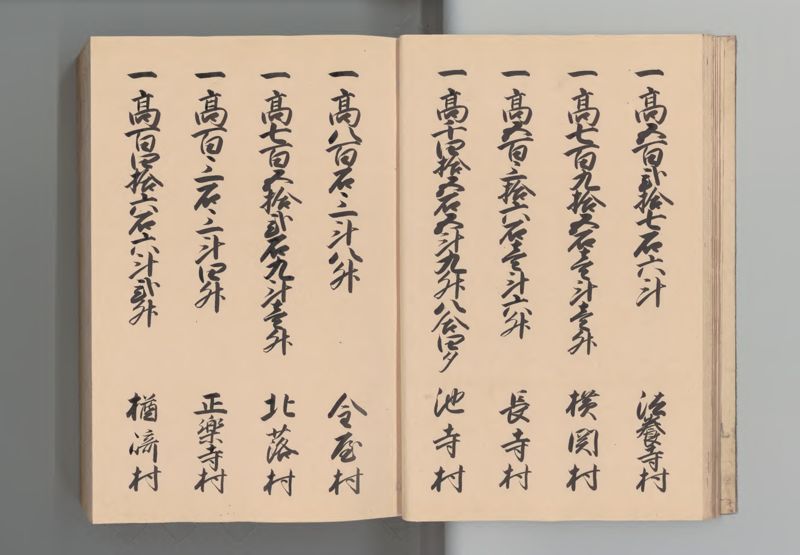 一高五百弐拾七石六斗 法養寺村
一高七百九拾五石壱斗壱升 横関村
一高五百三拾六石壱斗六升 長寺村
一高千四拾五石五斗九升八合四夕 池寺村
一高八百石三斗八升 金屋村
一高七百五拾弐石九斗壱升 北落村
一高百三石三斗四升 正楽寺村
一高百四拾六石六斗弐升 楢崎村